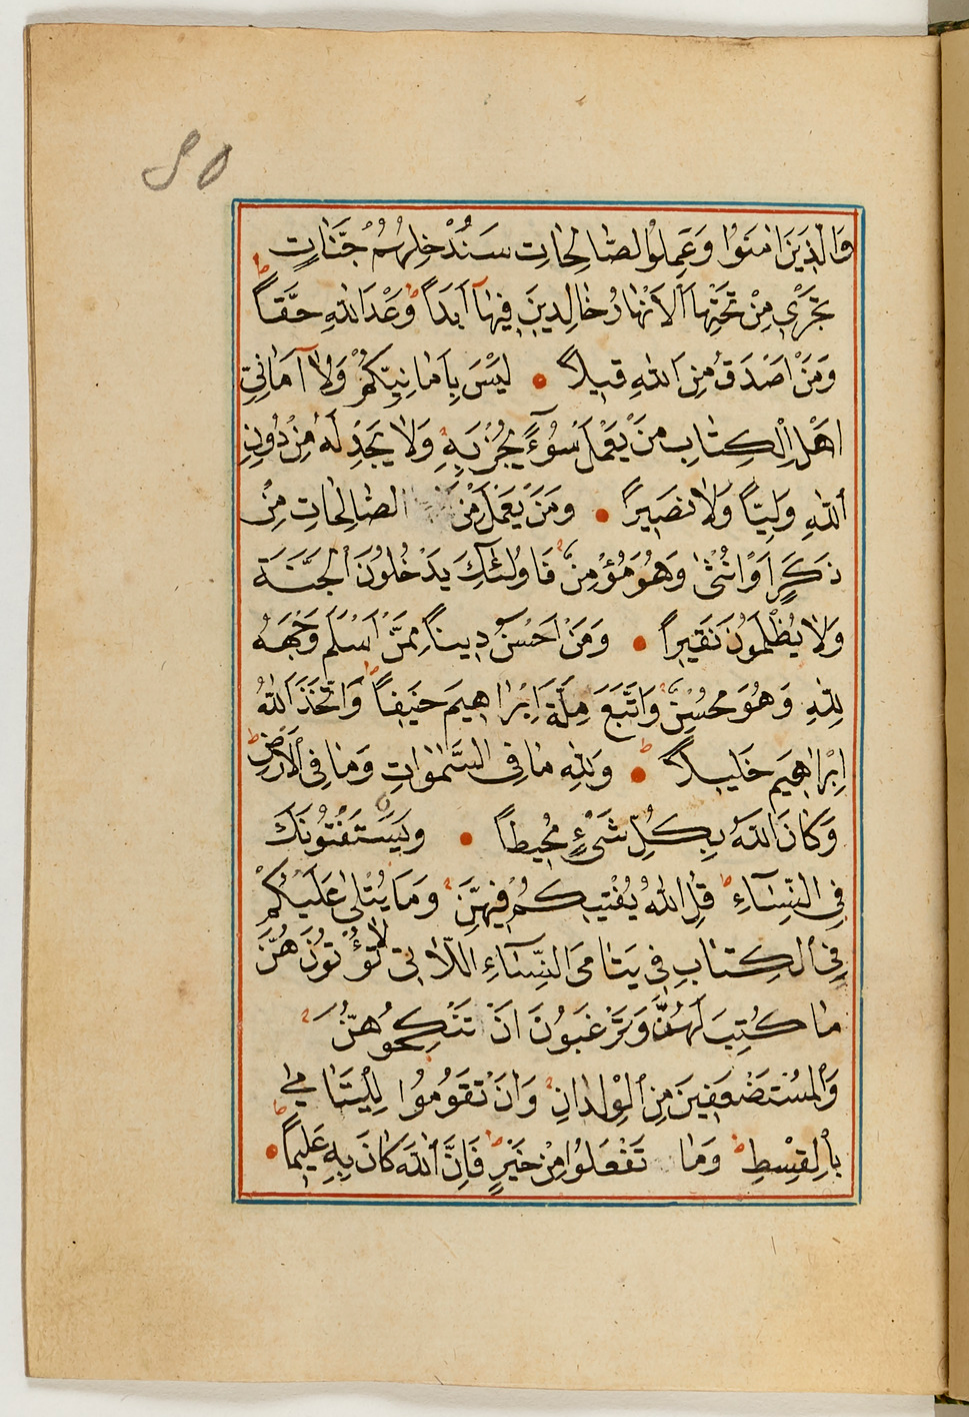 80
وَالَّذِينَ اٰمَنُوا وَعَمِلُوا الصَّالِحَاتِ سَنُدْخِلُهُمْ جَنَّاتٍ
تَجْرِي مِنْ تَحْتِهَا الْاَنْهَارُ خَالِدِينَ فِيهَا اَبَدًا وَعْدَ اللهِ حَقًّا
وَمَنْ اَصْدَقُ مِنَ اللهِ قِيلًا لَيْسَ بِاَمَانِيِّكُمْ وَلَا اَمَانِيِّ
اَهْلِ الْكِتَابِ مَنْ يَعْمَلْ سُوءًا يُجْزَ بِهِ وَلَا يَجِدْ لَهُ مِنْ دُونِ
اللهِ وَلِيًّا وَلَا نَصِيرًا وَمَنْ يَعْمَلْ مِنَ الصَّالِحَاتِ مِنْ
ذَكَرٍ اَوْ اُنْثٰى وَهُوَ مُؤْمِنٌ فَاُولٰئِكَ يَدْخُلُونَ الْجَنَّةَ
وَلَا يُظْلَمُونَ نَقِيرًا وَمَنْ اَحْسَنُ دِينًا مِمَّنْ اَسْلَمَ وَجْهَهُ
لِلّٰهِ وَهُوَ مُحْسِنٌ وَاتَّبَعَ مِلَّةَ اِبْرَاهِيمَ حَنِيفًا وَاتَّخَذَ اللهُ
اِبْرَاهِيمَ خَلِيلًا وَلِلّٰهِ مَا فِي السَّمٰوَاتِ وَمَا فِي الْاَرْضِ
وَكَانَ اللهُ بِكُلِّ شَيْءٍ مُحِيطًا وَيَسْتَفْتُونَكَ
فِي النِّسَاءِ قُلِ اللهُ يُفْتِيكُمْ فِيهِنَّ وَمَا يُتْلٰى عَلَيْكُمْ
فِي الْكِتَابِ فِي يَتَامَى النِّسَاءِ اللَّاتِي لَا تُؤْتُونَهُنَّ
مَا كُتِبَ لَهُنَّ وَتَرْغَبُونَ اَنْ تَنْكِحُوهُنَّ
وَالْمُسْتَضْعَفِينَ مِنَ الْوِلْدَانِ وَاَنْ تَقُومُوا لِلْيَتَامٰى
بِالْقِسْطِ وَمَا تَفْعَلُوا مِنْ خَيْرٍ فَاِنَّ اللهَ كَانَ بِهِ عَلِيمًا